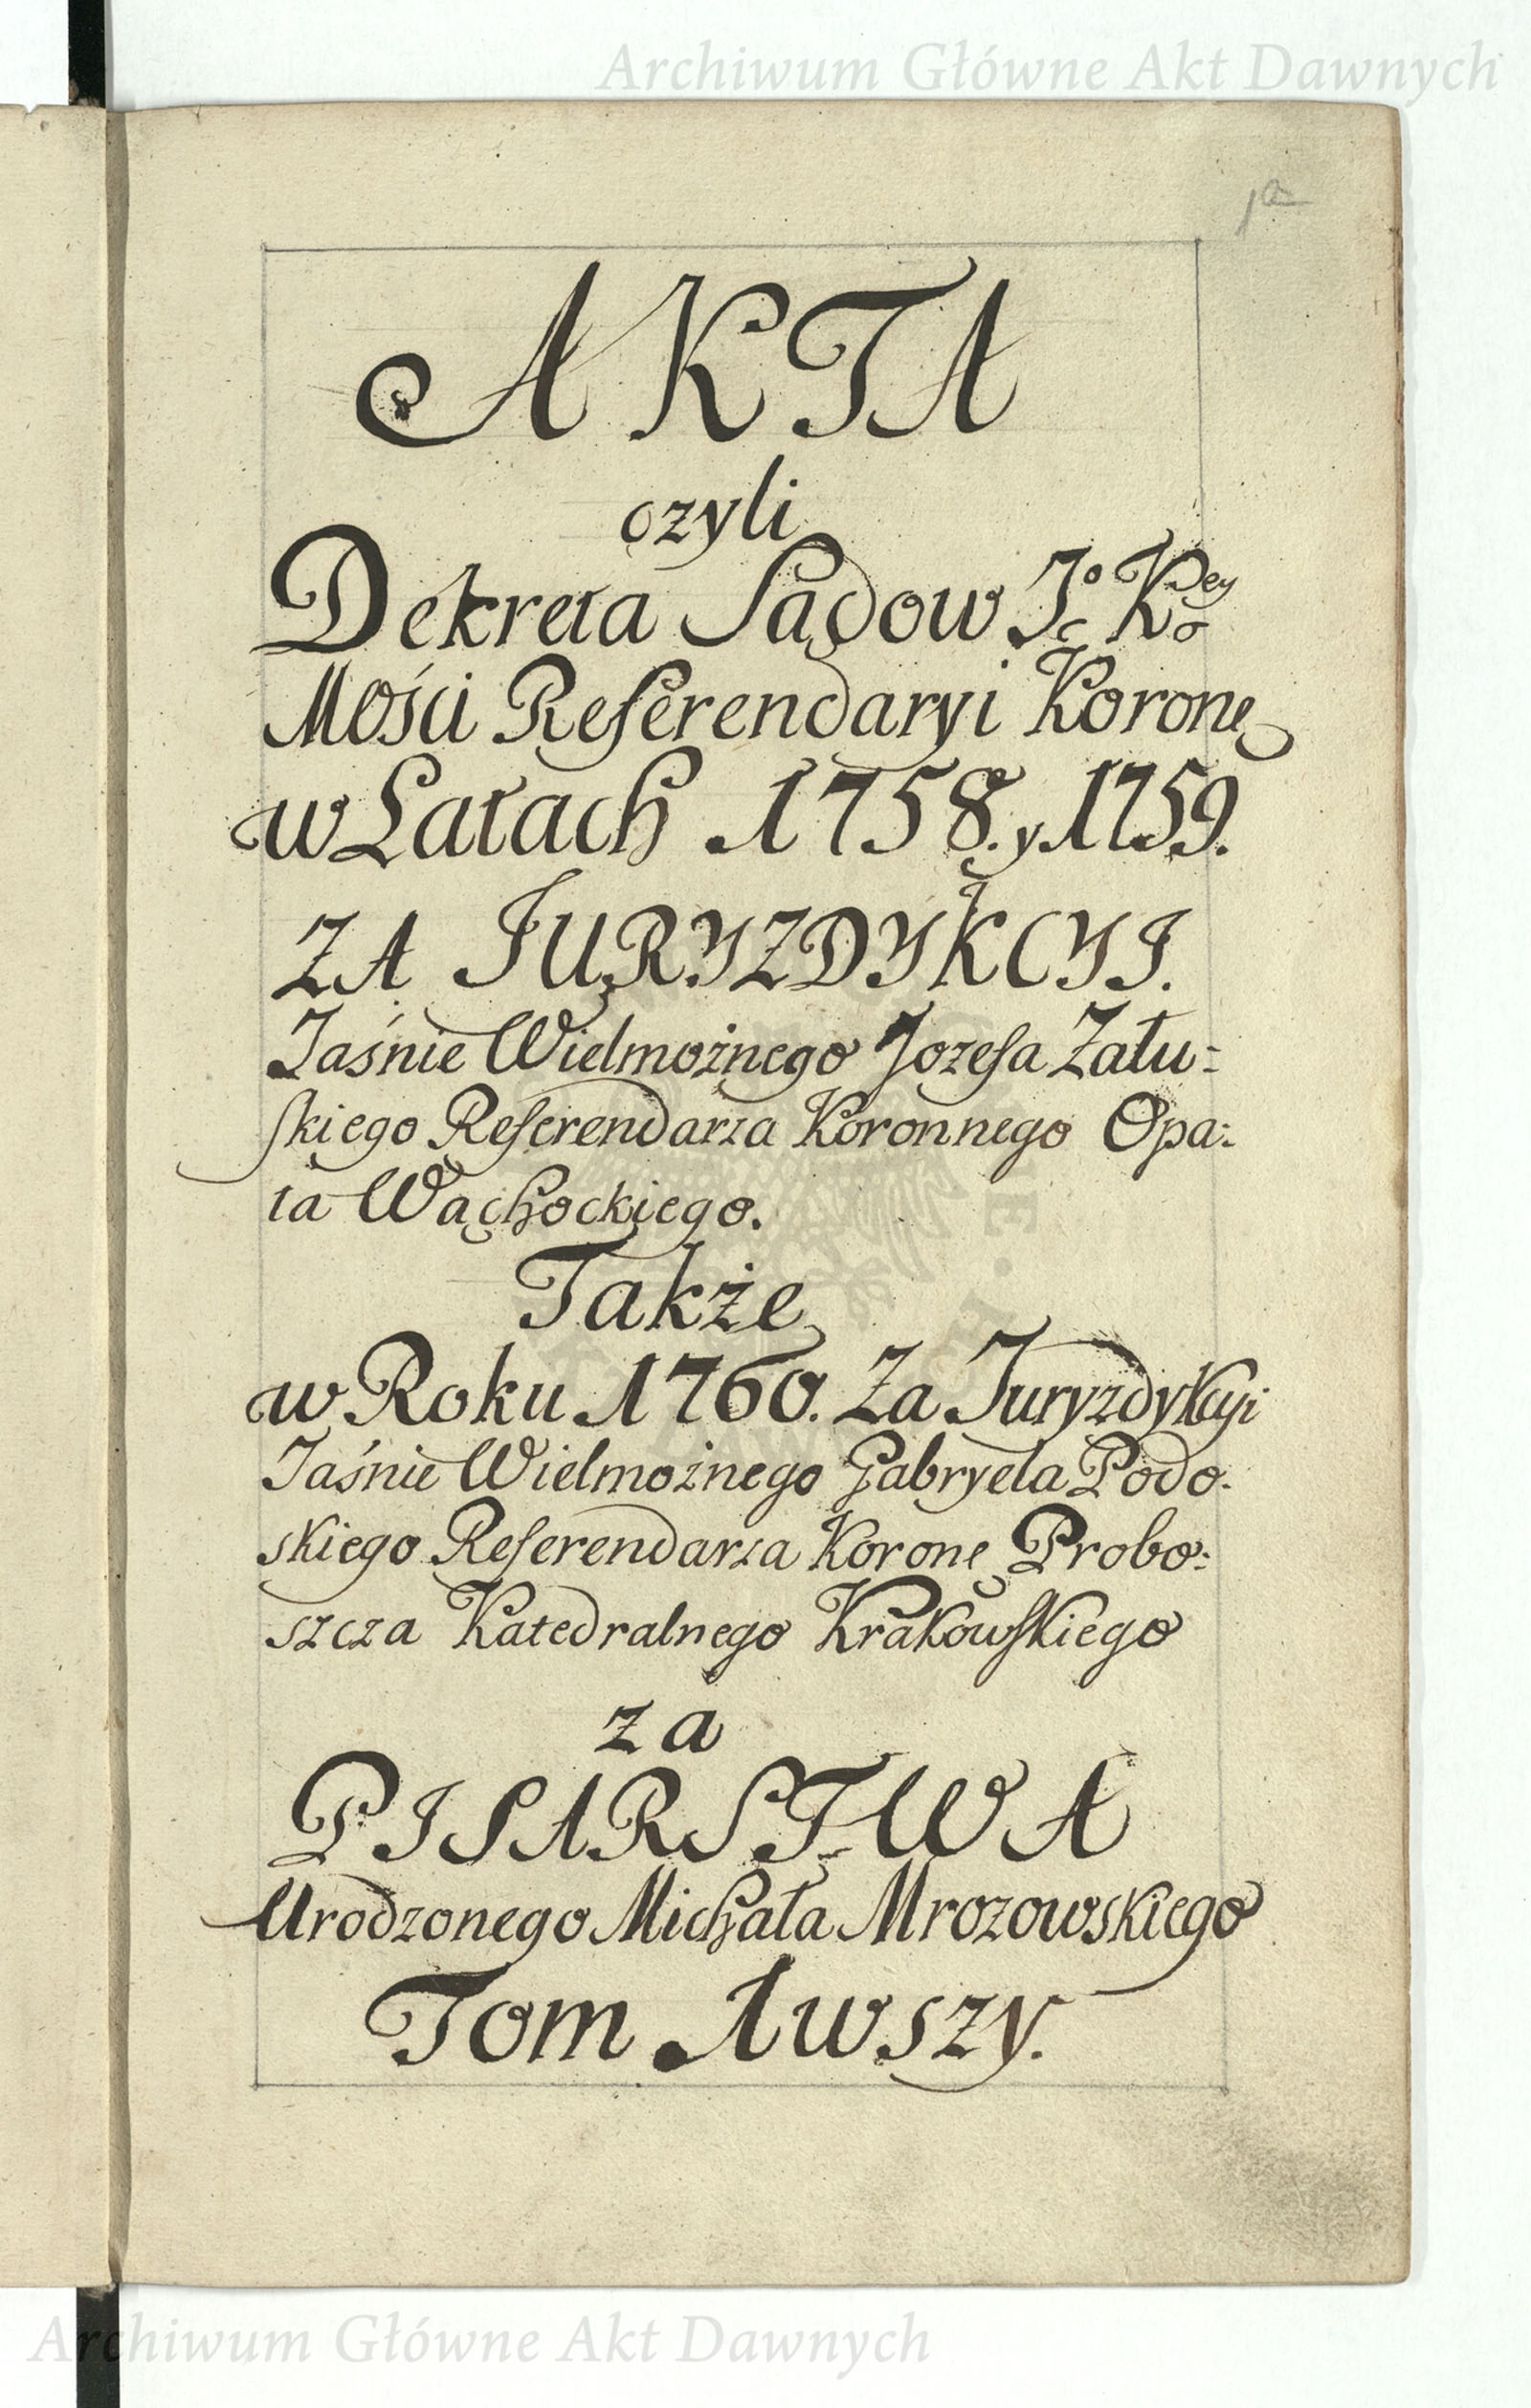 Archiwum Główne Akt Dawnych
1a
AKTA
czyli
Dekreta Sądow Jo Kr
Mości Referendaryi Koronę
w Latach 1758. y 1759.
ZA JURYZDYKCYI.
Jaśnie Wielmożnego Jozefa Zału=
skiego Referendarza Koronnego Opa=
ta Wąchockiego.
Także
w Roku 1760. Za Juryzdykcyi
Jaśnie Wielmożnego Gabryela Podo=
skiego Referendarza Koronę Probo=
szcza Katedralnego Krakowskiego
za
PISARSTWA
Urodzonego Michała Mrozowskiego
Tom 1wszy.
Archiwum Główne Akt Dawnych